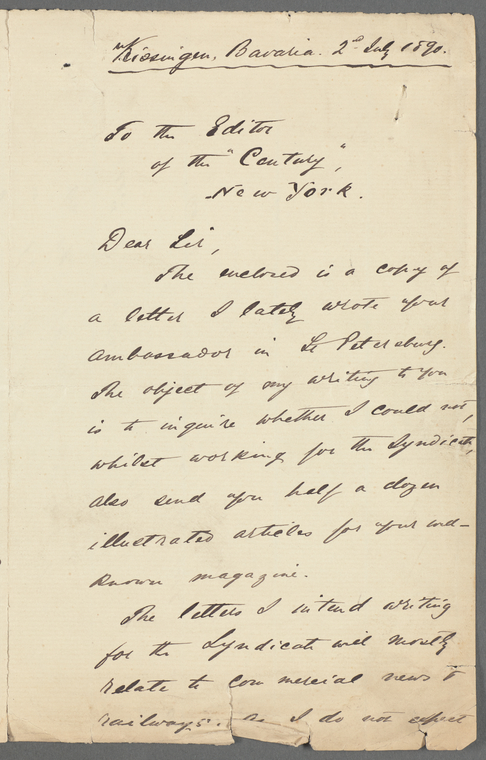 Kissingen, Bavaria. 2nd July 1890.
To the Editor
of the "Century",
New York.
Dear Sir,
The enclosed is a copy of
a letter I lately wrote your
ambassador in St Petersburg.
The object of my writing to you
is to inquire whether I could not,
whilst working for the Syndicate,
also send you half a dozen
illustrated articles for your well-
known magazine.
The letters I intend writing
for the Syndicate will mostly
relate to commercial news &
railways. as I do not expect